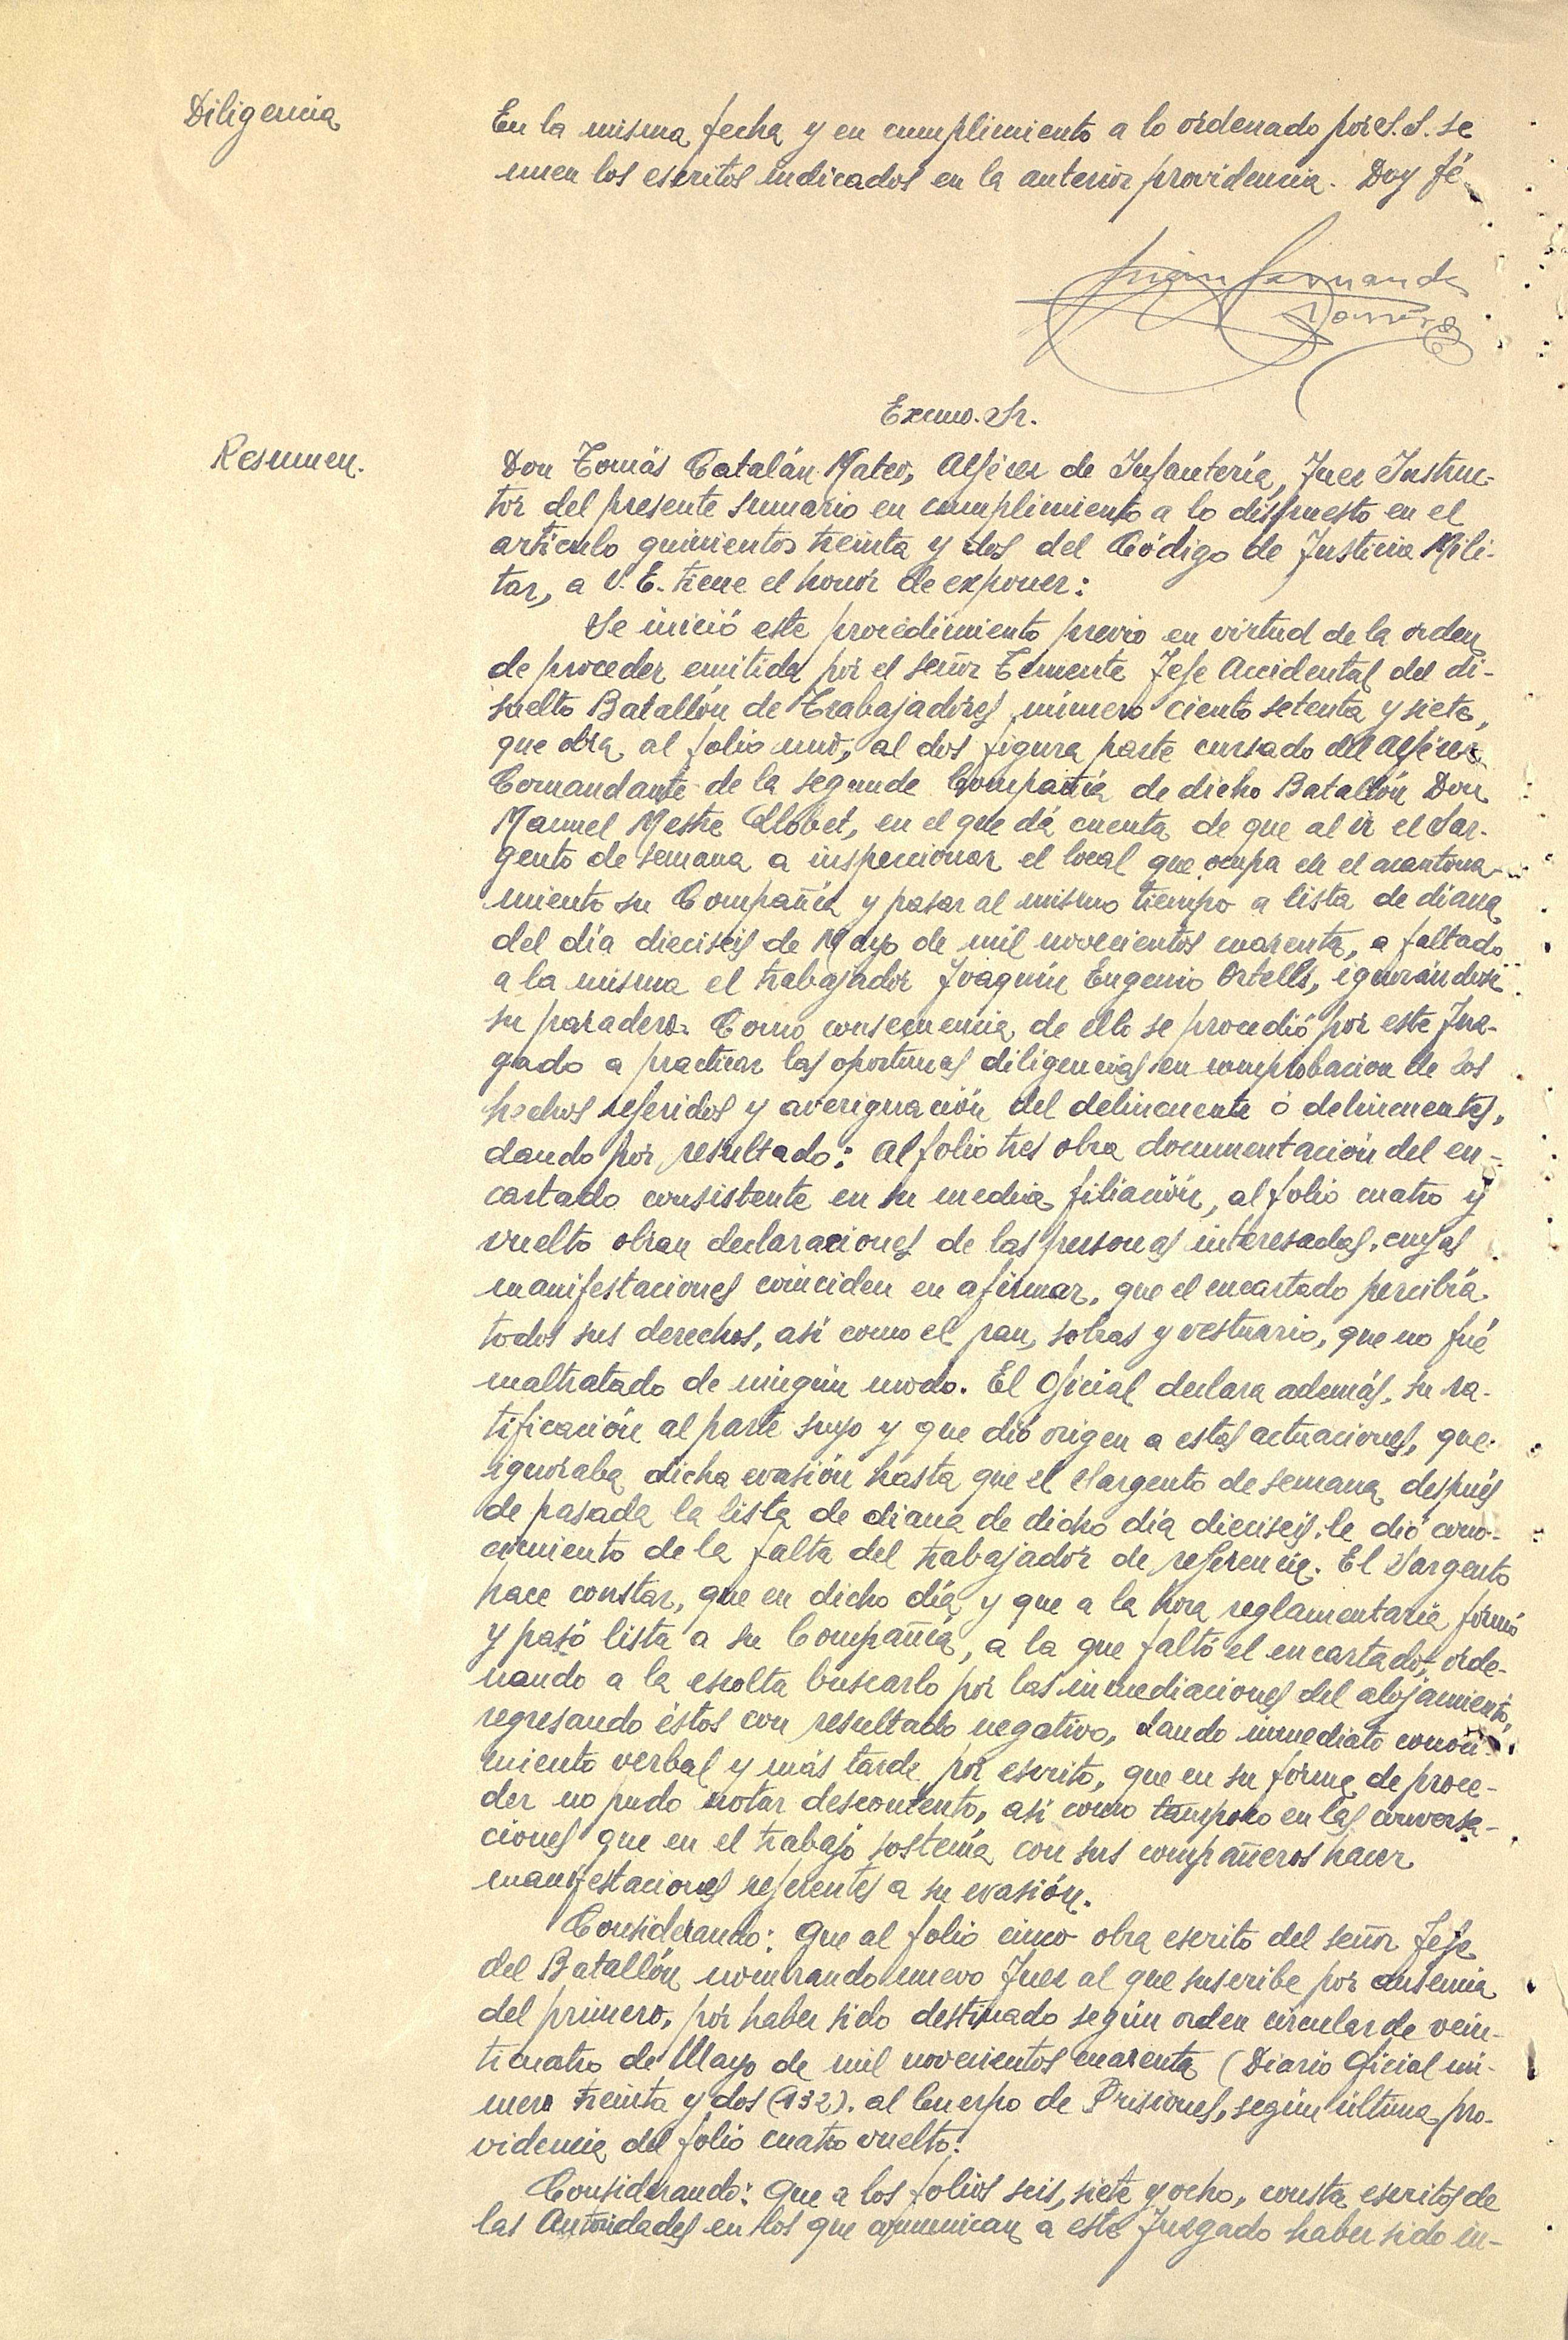 Diligencia
En la misma fecha y en cumplimiento a lo ordenado por S.S. se
unen los escritos indicados en la anterior providencia. Doy fé
Excmo. Sr.
Resumen.
Don Tomás Catalán Mateo, Alférez de Infantería, Juez Instruc-
tor del presente sumario en cumplimiento a lo dispuesto en el
artículo quinientos treinta y dos del Código de Justicia Mili-
tar, a V. E. tiene el honor de exponer:
Se inició este procedimiento previo en virtud de la orden
de proceder emitida por el señor Teniente Jefe Accidental del di-
suelto Batallón de Trabajadores número ciento setenta y siete,
que obra al folio uno, al dos figura parte cursado del Alférez
Comandante de la segunde Compañía de dicho Batallón Don
Manuel Mestre Llobet, en el que dá cuenta de que al ir el Sar-
gento de semana a inspeccionar el local que ocupa en el acantona-
miento su Compañía y pasar al mismo tiempo a lista de diana
del día dieciseis de Mayo de mil novecientos cuarenta, a faltado
a la misma el trabajador Joaquín Eugenio Ortells, ignorándose
su paradero. Como consecuencia de ello se procedió por este Juz-
gado a practicar las oportunas diligencias en comprobacion de los
hechos referidos y averiguación del delincuente ó delincuentes,
dando por resultado: Al folio tres obra documentación del en-
cartado consistente en su media filiación, al folio cuatro y
vuelto obran declaraciones de las personas interesadas, cuyas
manifestaciones coinciden en afirmar, que el encartado percibía
todos sus derechos, así como el pan, sobras y vestuario, que no fué
maltratado de ningún modo. El Oficial declara además, su ra-
tificación al parte suyo y que dió origen a estas actuaciones, que
ignoraba dicha evasión hasta que el Sargento de semana, después
de pasada la lista de diana de dicho día dieciseis, le dió cono-
cimiento de la falta del trabajador de referencia. El Sargento
hace constar, que en dicho día y que a la hora reglamentaria formó
y pasó lista a su Compañía, a la que faltó el encartado, orde-
nando a la escolta buscarlo por las inmediaciones del alojamiento,
regresando éstos con resultado negativo, dando inmediato conoci-
miento verbal y más tarde por escrito, que en su forma de proce-
der no pudo notar descontento, así como tampoco en las conversa-
ciones que en el trabajo sostenía con sus compañeros hacer
manifestaciones referentes a su evasión.
Considerando: Que al folio cinco obra escrito del señor Jefe
del Batallón nombrando nuevo Juez al que suscribe por ausencia
del primero, por haber sido destinado según orden circular de vein-
ticuatro de Mayo de mil novecientos cuarenta (Diario Oficial nú-
mero treinta y dos (132). al Cuerpo de Prisiones, según última pro-
videncia del folio cuatro vuelto.
Considerando: Que a los folios seis, siete y ocho, consta escritos de
las Autoridades en los que comunican a este Juzgado haber sido in-